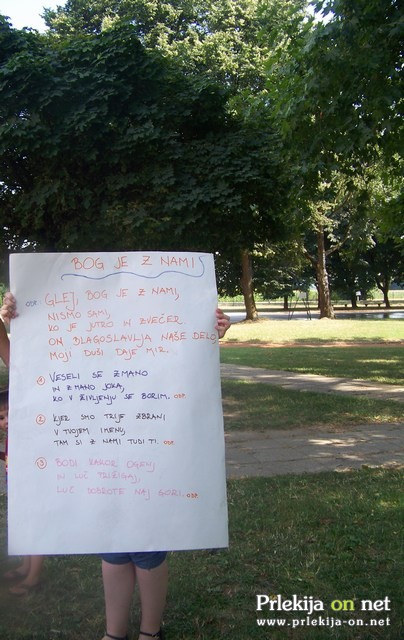 BOG JE Z NAMI
ODP. GLEJ, BOG JE Z NAMI,
NISMO SAMI,
KO JE JUTRO IN ZVEČER.
ON BLAGOSLAVLJA NAŠE DELO,
MOJI DUŠI DAJE MIR.
1 VESELI SE Z MANO
IN Z MANO JOKA,
KO V ŽIVLJENJU SE BORIM. ODP.
2 KJER SMO TRIJE ZBRANI
V TVOJEM IMENU,
TAM SI Z NAMI TUDI TI. ODP.
3 BODI KAKOR OGENJ
IN LUČ PRIŽIGAJ,
LUČ DOBROTE NAJ GORI. ODP.
Prlekija on net
www.prlekija-on.net